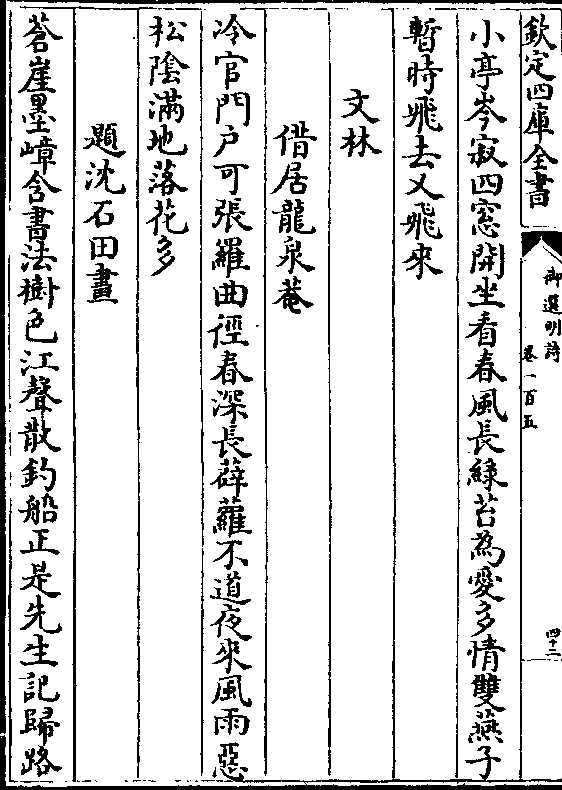 欽定四庫全書
御選明詩
卷一百五
四十二
小亭岑寂四窓開坐看春風長緑苔為愛多情雙燕子
暫時飛去又飛來
文林
借居龍泉菴
冷官門户可張羅曲徑春深長薜蘿不道夜來風雨惡
松陰滿地落花多
題沈石田畫
蒼崖墨嶂含書法樹色江聲散釣船正是先生記歸路